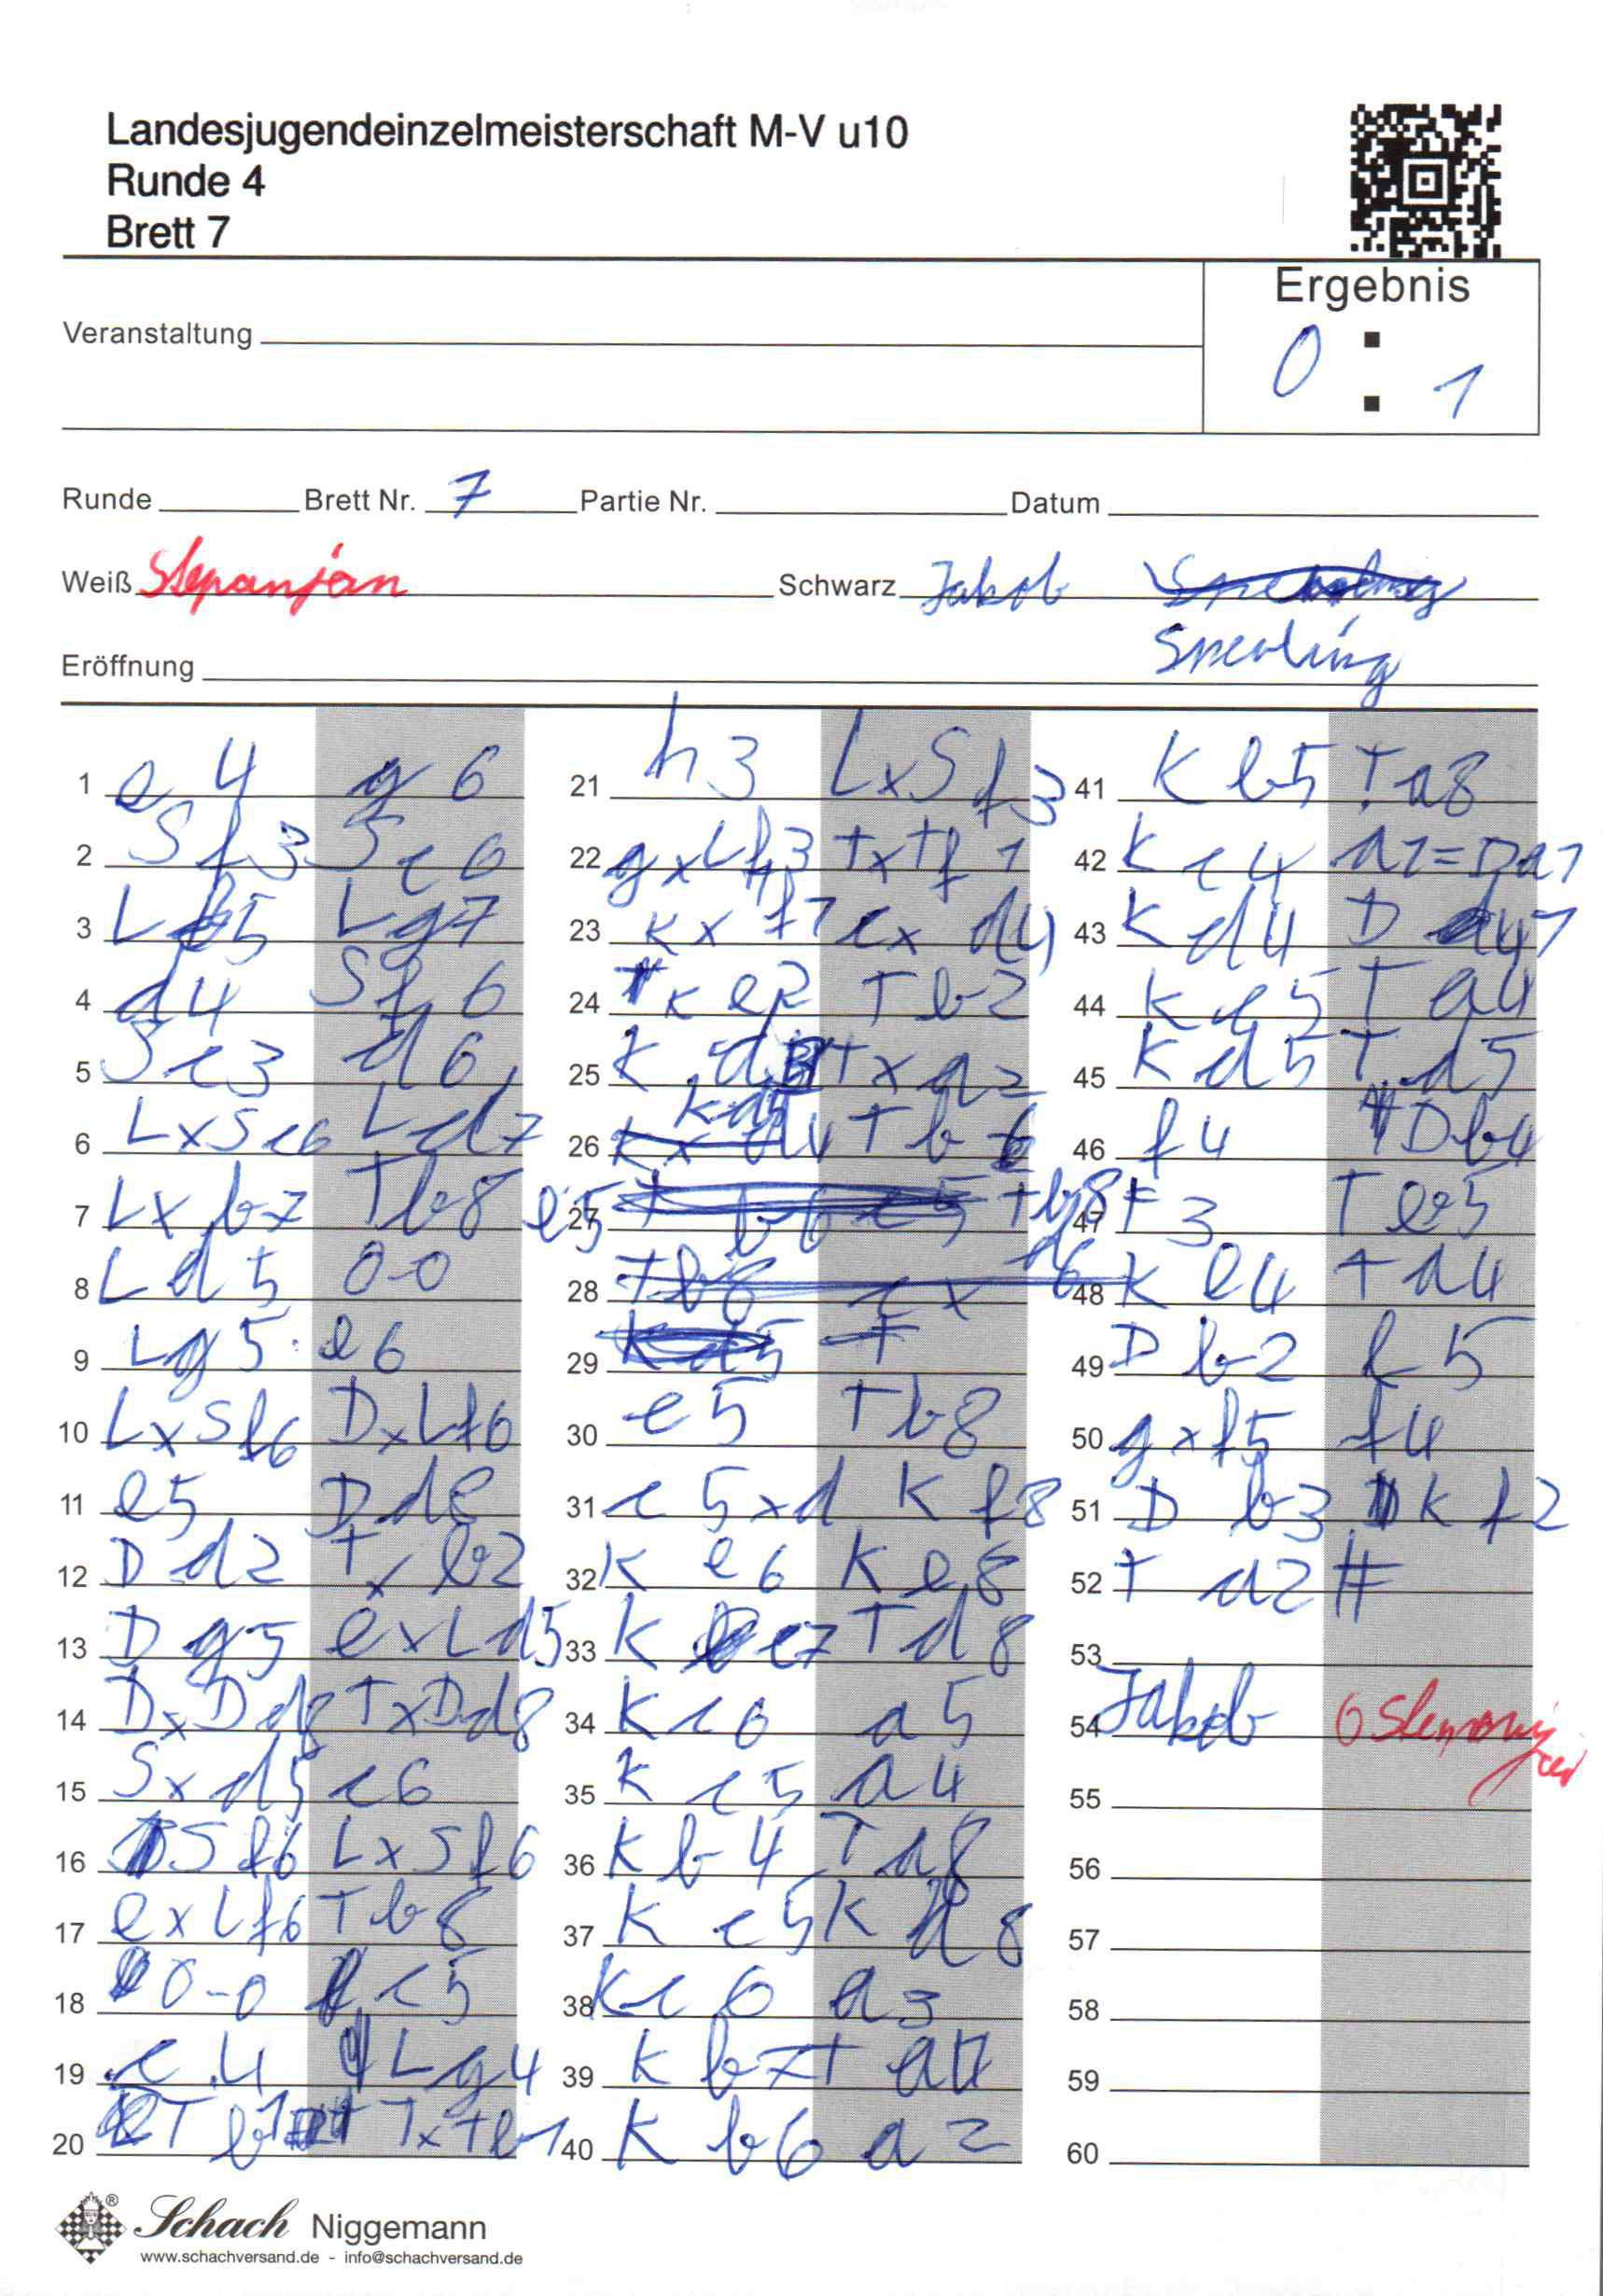 Landesjugendeinzelmeisterschaft M-V u10
Runde 4
Brett 7
Ergebnis
0 : 1
Veranstaltung
Runde Brett Nr. 7 Partie Nr. Datum
Weiß Stepanjan Schwarz Jakob
Sperling
Eröffnung
1 e4 g6
2 Sf3 Sc6
3 Lb5 Lg7
4 d4 Sf6
5 Sc3 d6
6 LxSc6 Ld7
7 Lxb7 Tb8
8 Ld5 0-0
9 Lg5 e6
10 LxSf6 DxLf6
11 e5 Dd8
12 Dd2 Txb2
13 Dg5 exLd5
14 DxDd8 TxDd8
15 Sxd5 c6
16 Sf6 LxSf6
17 exLf6 Tb8
18 0-0 c5
19 c4 Lg4
20 Tb1 TxTb1
21 h3 LxSf3
22 gxLf3 TxTf1
23 Kxf1 cxd4
24 Ke2 Tb2
25 Kd3 Txa2
26 Kd5 Tb6
27 e5 Tb8
28
29
30 e5 Tb8
31 c5xd Kf8
32 Ke6 Ke8
33 Kc7 Td8
34 Kc6 a5
35 Kc5 a4
36 Kb4 Ta8
37 Kc5 Kd8
38 Kc6 a3
39 Kb7 Ta4
40 Kb6 a2
41 Kb5 Ta8
42 Kc4 a1=Da1
43 Kd4 D
44 Kc5 Ta4
45 Kd5 Td5
46 f4 Db4
47 F3 Te5
48 Ke4 Ta4
49 Db2 f5
50 gxf5 f4
51 Db3 Kf2
52 Ta2#
53
54 Jakob
55
56
57
58
59
60
Schach Niggemann
www.schachversand.de - info@schachversand.de